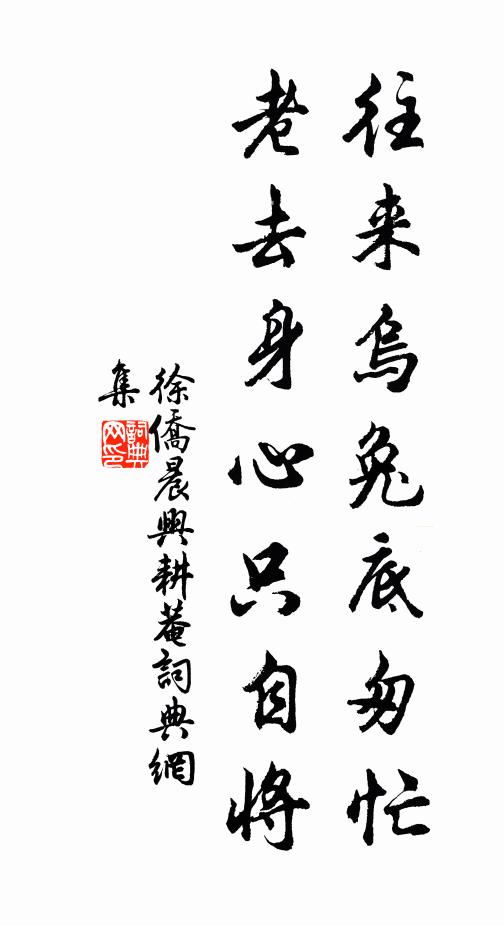 往来烏兔底匆忙
老去身心只自将
徐僑晨興耕菴詞典網
集
詞典
网印